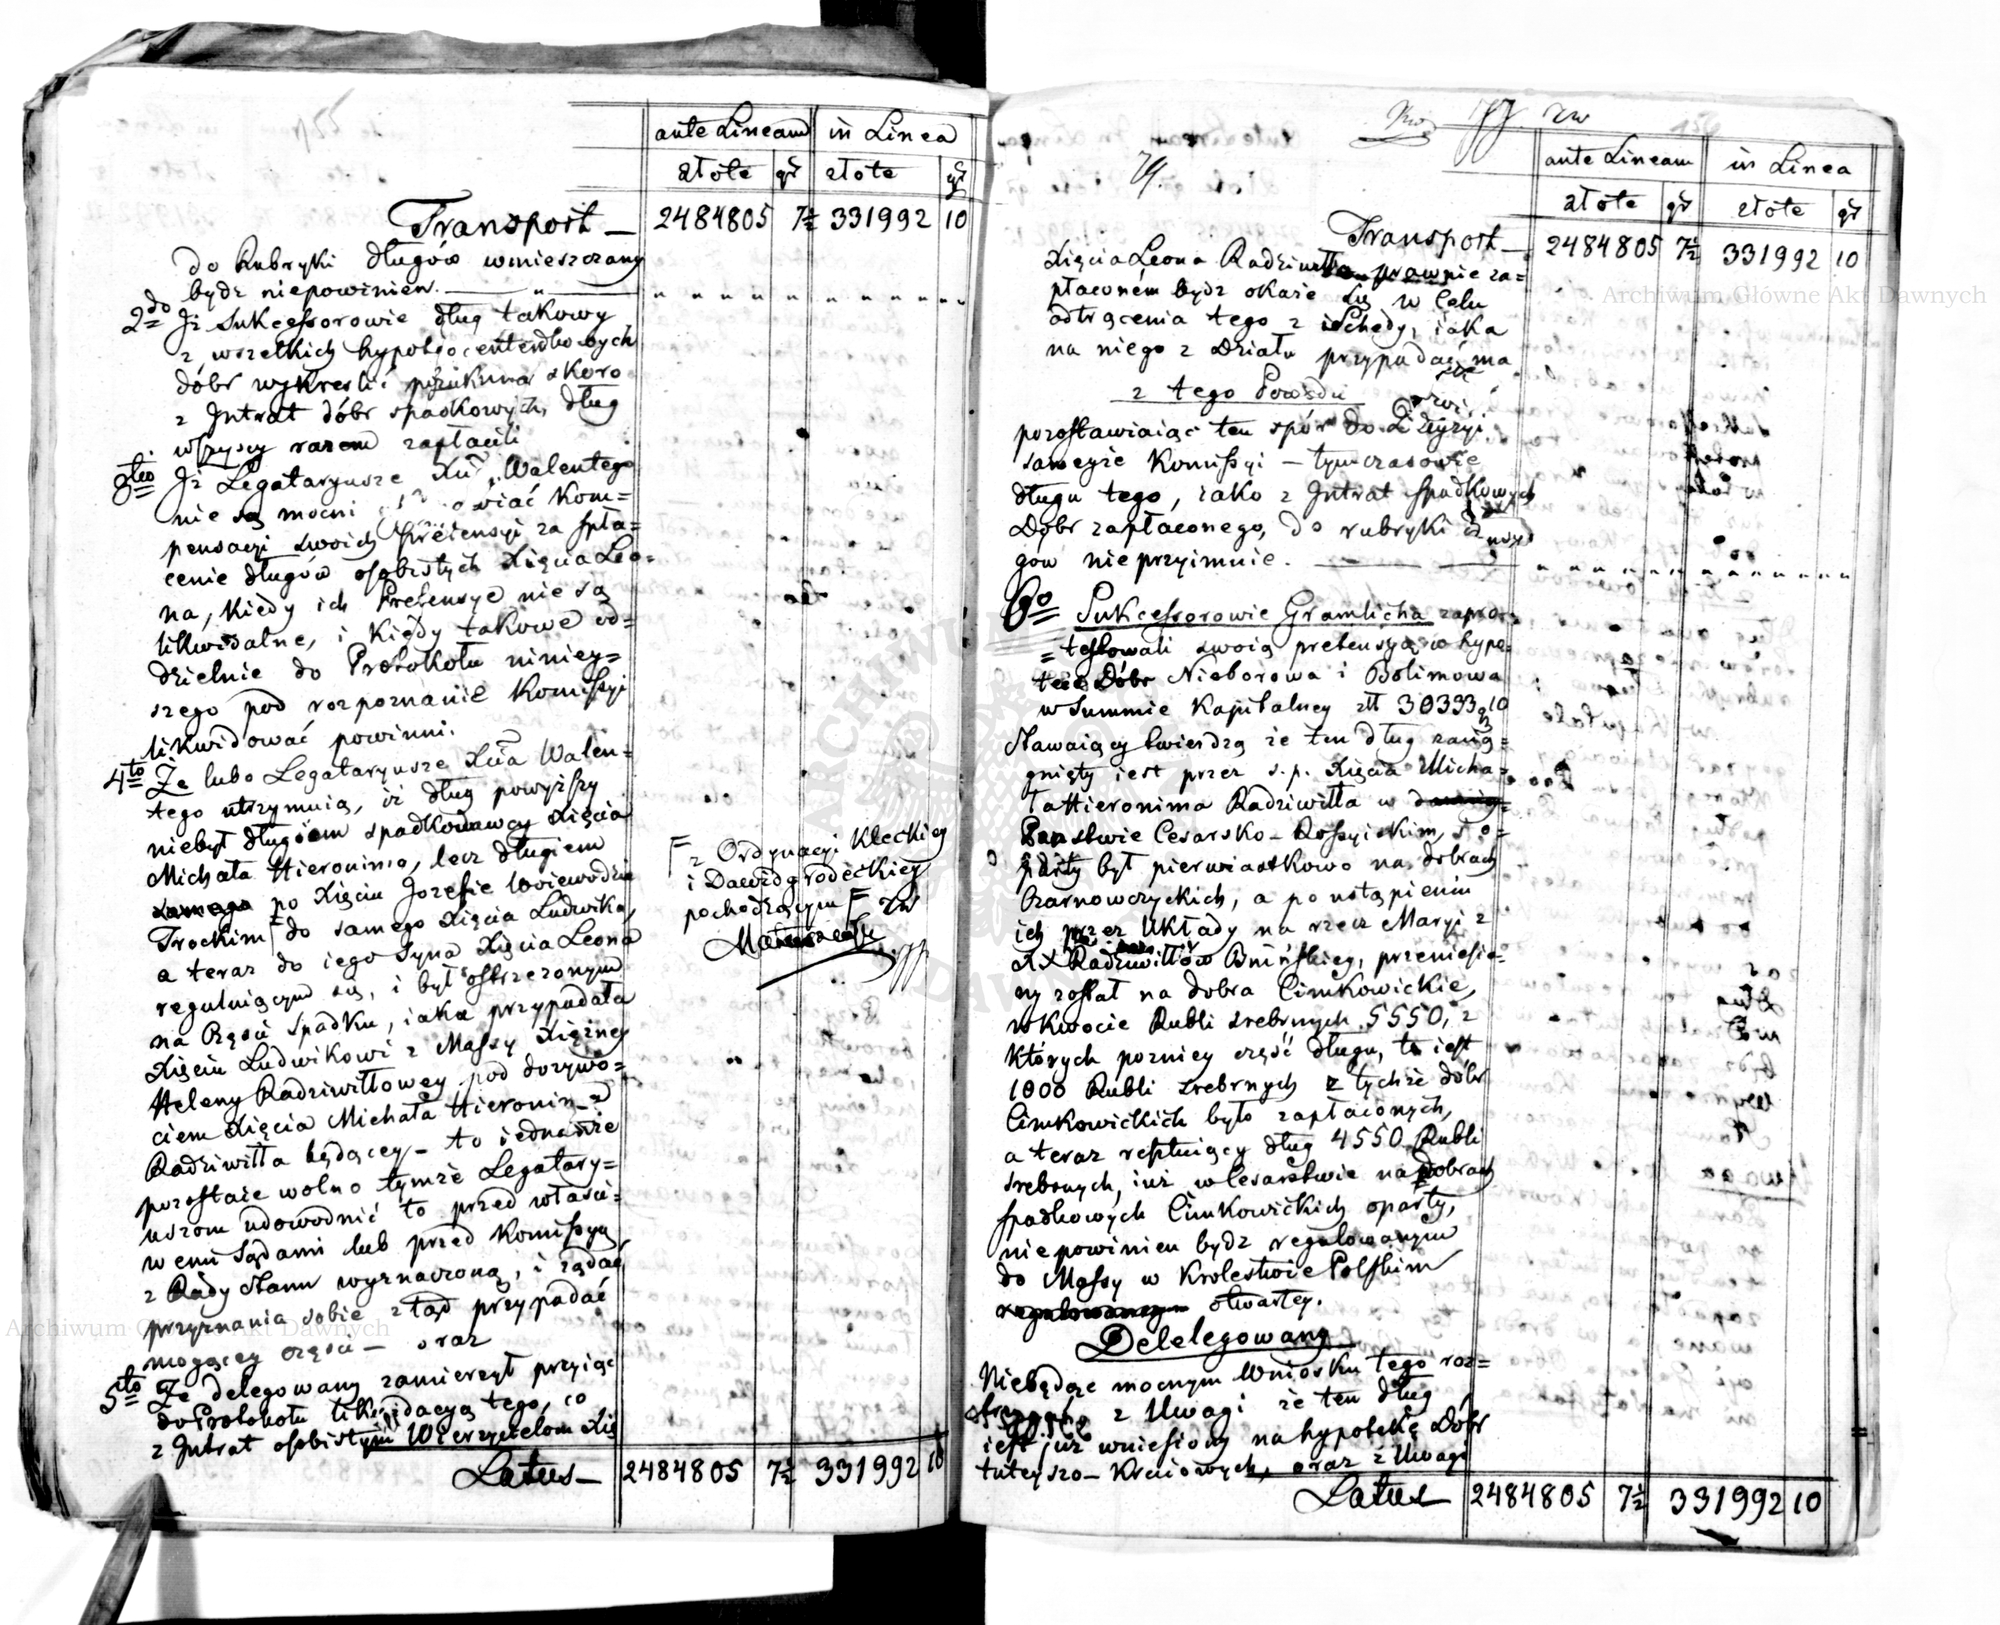 ante Lineam in Linea
złote gr złote gr
Transport — 2484805 7½ 331992 10
do Rubryki długów wmieszczany
bydź niepowinien.
2do Iż Sukcessorowie dług takowy
z wszelkich hypotjocenterdbowych
dóbr wykreślić skoro
z Intrat dóbr spadkowych, dług
wszyscy razem zapłacili
3tio Iż Legataryusze Xcia Walentego
nie są mocni kom=
pensacyi swoich Pretensyi za spła=
cenie długów osobistych Xięcia Leo=
na, kiedy ich Pretensye nie są
likwidalne, i kiedy takowe od=
dzielnie do Protokołu niniey=
szego pod rozpoznanie Komissyi
likwidować powinni.
4to Że lubo Legataryusze Xcia Walen=
tego utrzymuią, iż dług powyższy
niebył długiem spadkodawcy Xięcia
Michała Hieronima, lecz długiem
po Xięciu Jozefie Woiewodzie
Trockim F do samego Xięcia Ludwika,
a teraz do iego Syna Xięcia Leona
reguluiącym się, i był ostrzeżonym
na Części Spadku, iaka przypadała
Xięciu Ludwikowi z Massy Xiężney
Heleny Radziwiłłowey pod dożywo=
ciem Xięcia Michała Hieronima
Radziwiłła będącey — to iednakże
pozostaie wolno tymże Legatary=
uszom udowodnić to przed właści=
wemi Sądami lub przed Komissyą
z Rady Stanu wyznaczoną, i żądać
przyznania sobie ztąd przypadać
mogącey części — oraz
5to Że delegowany zamierzył przyiąć
do Protokołu likwidacyą tego, co
z Intrat osobistym Wierzycielom Xię
Latus — 2484805 7½ 331992 10
F z Ordynacyi Kleckiey
i Dawidgrodeckiey
pochodzącym F zw
Matuszewski
zw
79.
ante Lineam in Linea
złote gr złote gr
Transport — 2484805 7½ 331992 10
Xięcia Leona Radziwiłła prawnie za=
płaconem bydź okaże się w Celu
odtrącenia tego z Schedy, iaka
na niego z Działu przypadać ma
z tego Powodu
pozostawiaiąc ten spór do Decyzyi
sameyże Komissyi — tymczasowie
długu tego, iako z Intrat spadkowych
Dóbr zapłaconego, do rubryki
gów nieprzyimuie.
6o Sukcessorowie Gramlicha zapro=
=testowali swoią pretensyą w hypo=
tece Dóbr Nieborowa i Bolimowa
w Summie Kapitalney złł 30333 g 10
Stawaiący twierdzą że ten dług zacią=
gnięty iest przez s.p. Xięcia Micha=
ła Hieronima Radziwiłła w
Panstwie Cesarsko-Rossyiskim, o=
party był pierwiastkowo na dobrach
Czarnowczyckich, a po ustąpieniu
ich przez Układy na rzecz Maryi z
XX Radziwiłłów Bnińskiey, przeniesio=
ny został na dobra Cimkowickie,
w kwocie Rubli srebrnych 5550, z
których pozniey część długu, to iest
1000 Rubli srebrnych z tychże dóbr
Cimkowickich było zapłaconych,
a teraz resztuiący dług 4550 Rubli
srebrnych, iuż w Cesarstwie na dobrach
spadkowych Cimkowickich oparty,
niepowinien bydź regulowanym
do Massy w Krolestwie Polskim
regulowaney otwartey.
Delelegowany
Niebędąc mocnym Wniosku tego roz=
z Uwagi że ten dług
iest już wniesiony na hypotekę Dóbr
tuteyszo-Kraiowych, oraz z Uwagi
Latus — 2484805 7½ 331992 10
Archiwum Główne Akt Dawnych
Archiwum Główne Akt Dawnych